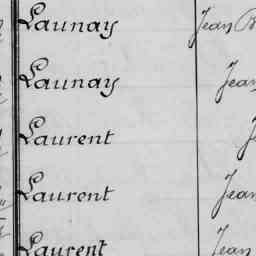 Launay Jean
Launay Jean
Laurent
Laurent Jean
Laurent Jean